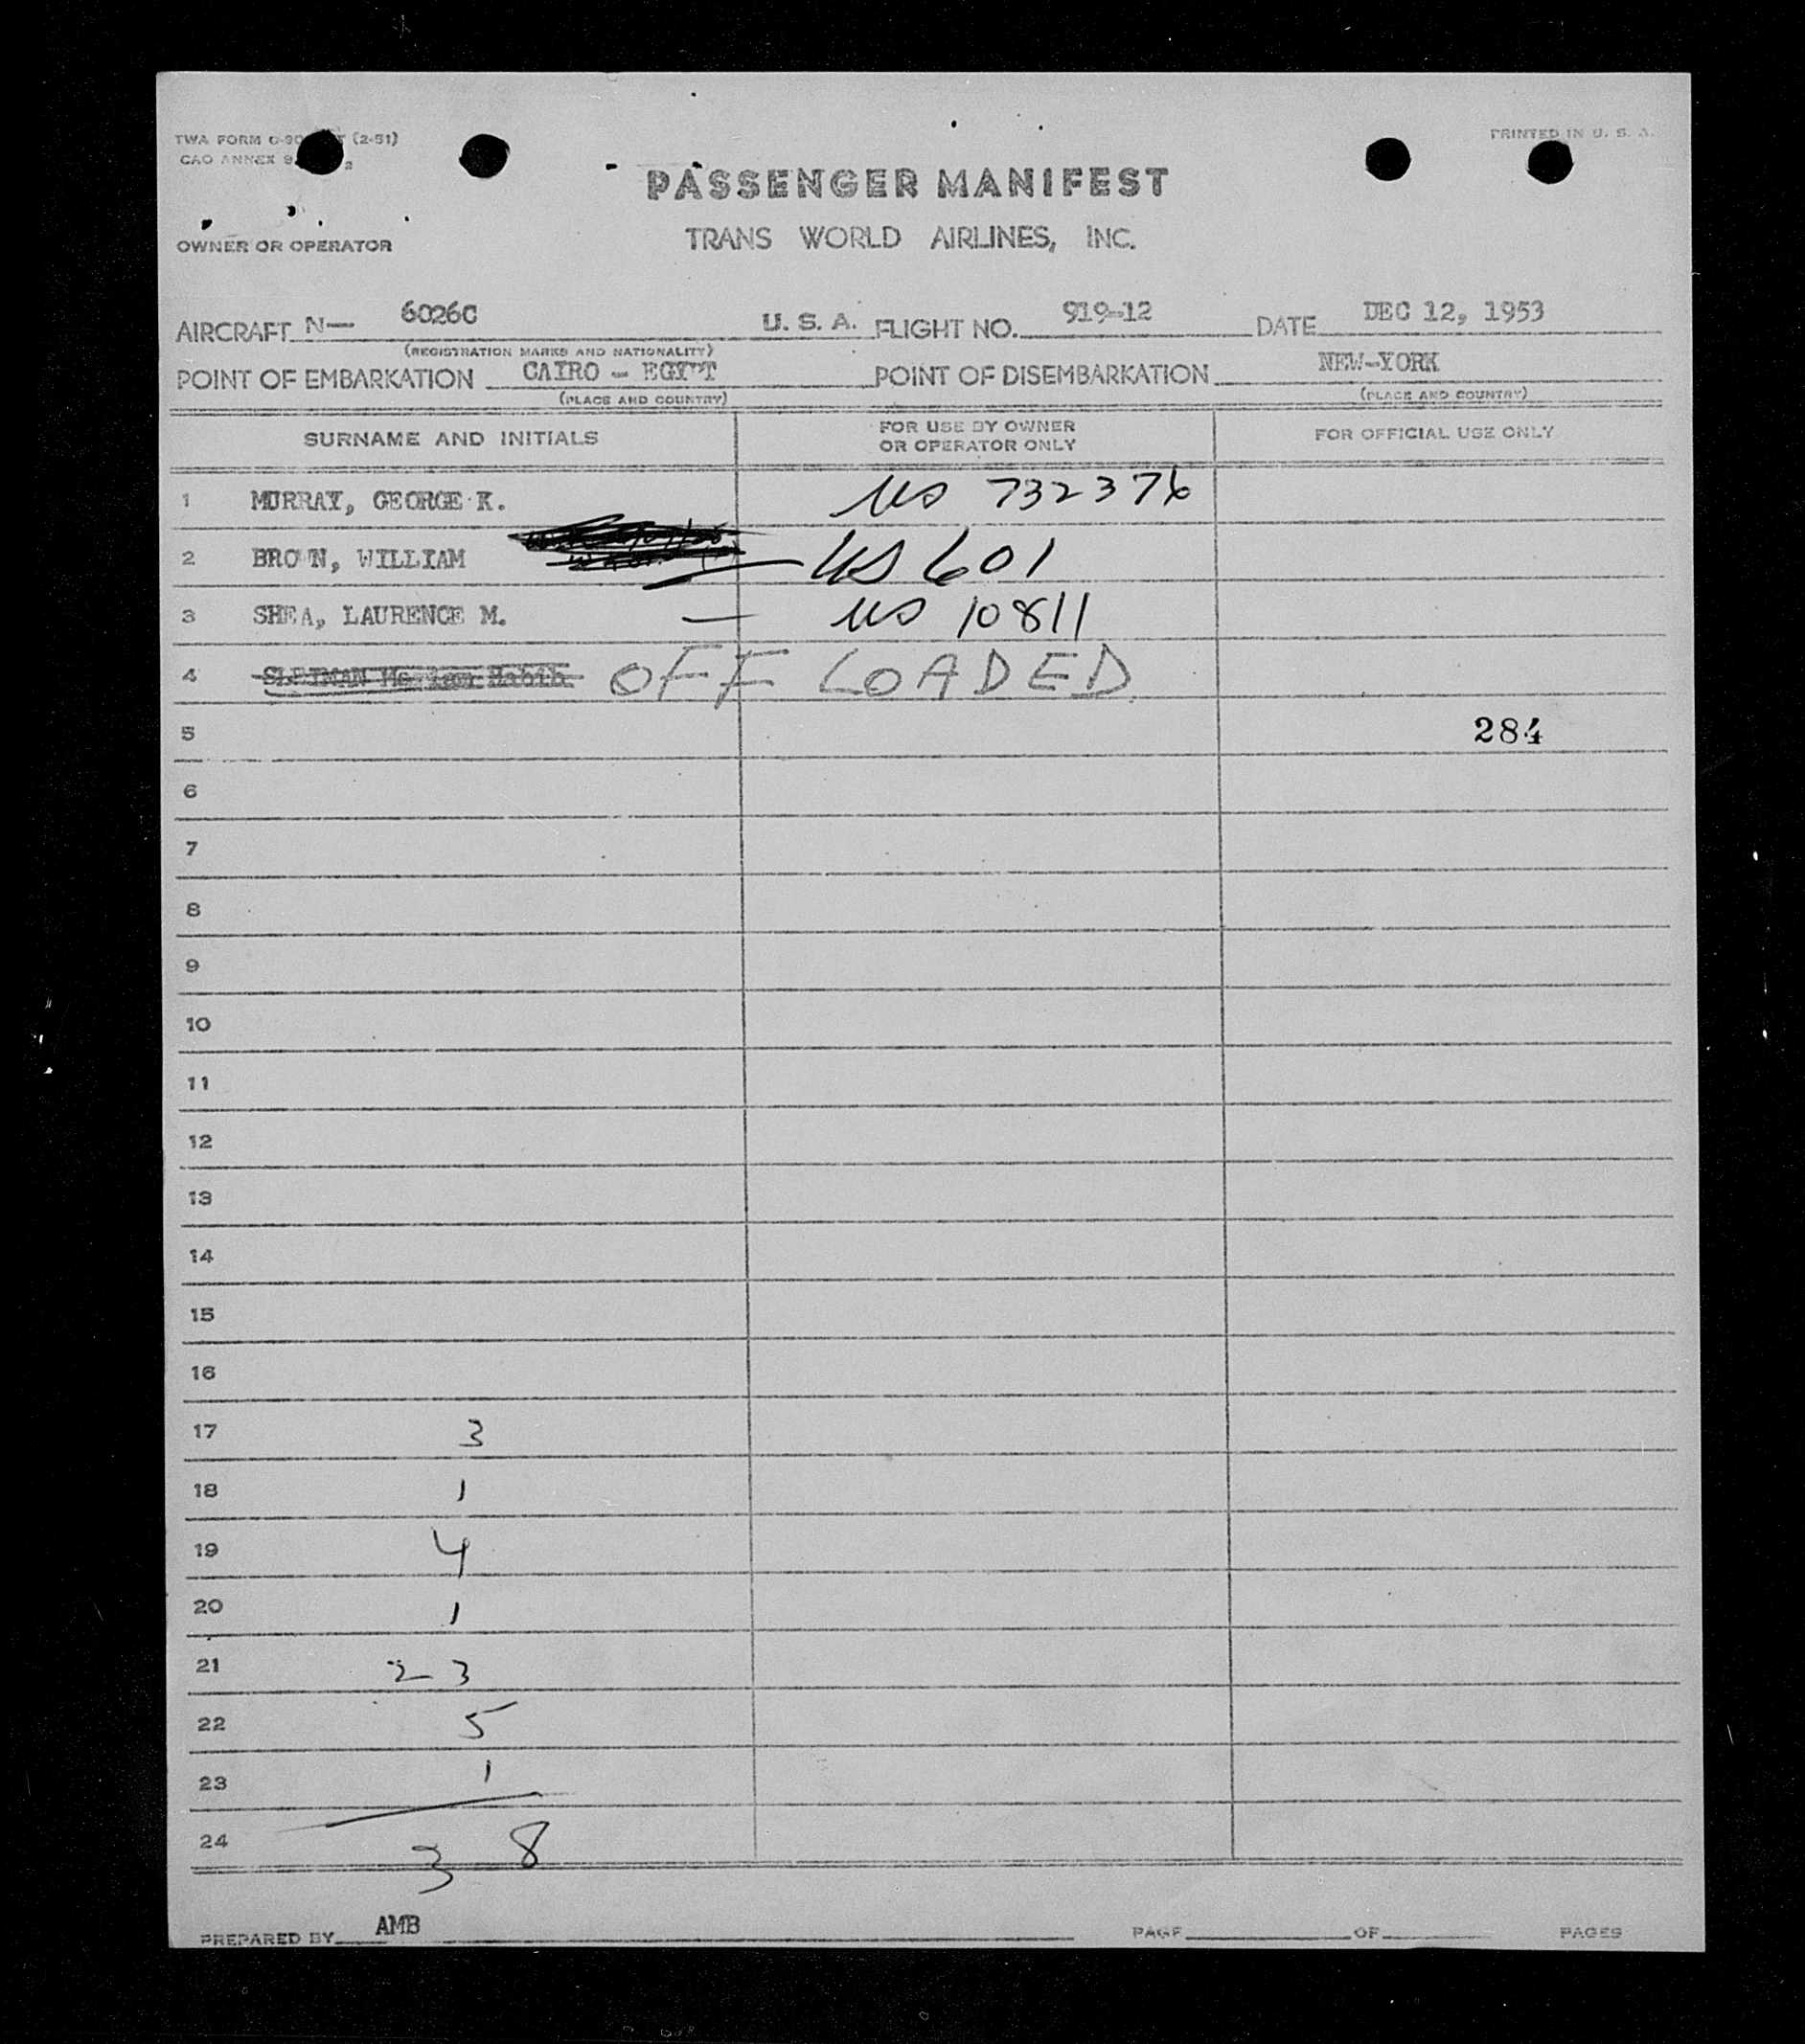 TWA FORM (2-51)
PRINTED IN U. S. A.
CAO ANNEX 9
PASSENGER MANIFEST
OWNER OR OPERATOR
TRANS WORLD AIRLINES, INC.
AIRCRAFT N— 6026C U. S. A. FLIGHT NO. 919-12 DATE DEC 12, 1953
(REGISTRATION MARKS AND NATIONALITY)
POINT OF EMBARKATION CAIRO - EGYPT POINT OF DISEMBARKATION NEW-YORK
(PLACE AND COUNTRY) (PLACE AND COUNTRY)
SURNAME AND INITIALS FOR USE BY OWNER OR OPERATOR ONLY FOR OFFICIAL USE ONLY
1 MURRAY, GEORGE K. US 732376
2 BROWN, WILLIAM — US 601
3 SHEA, LAURENCE M. — US 10811
4 SLEIMAN Habib OFF LOADED
5 284
6
7
8
9
10
11
12
13
14
15
16
17 3
18 1
19 4
20 1
21 23
22 5
23 1
24 38
PREPARED BY AMB PAGE OF PAGES